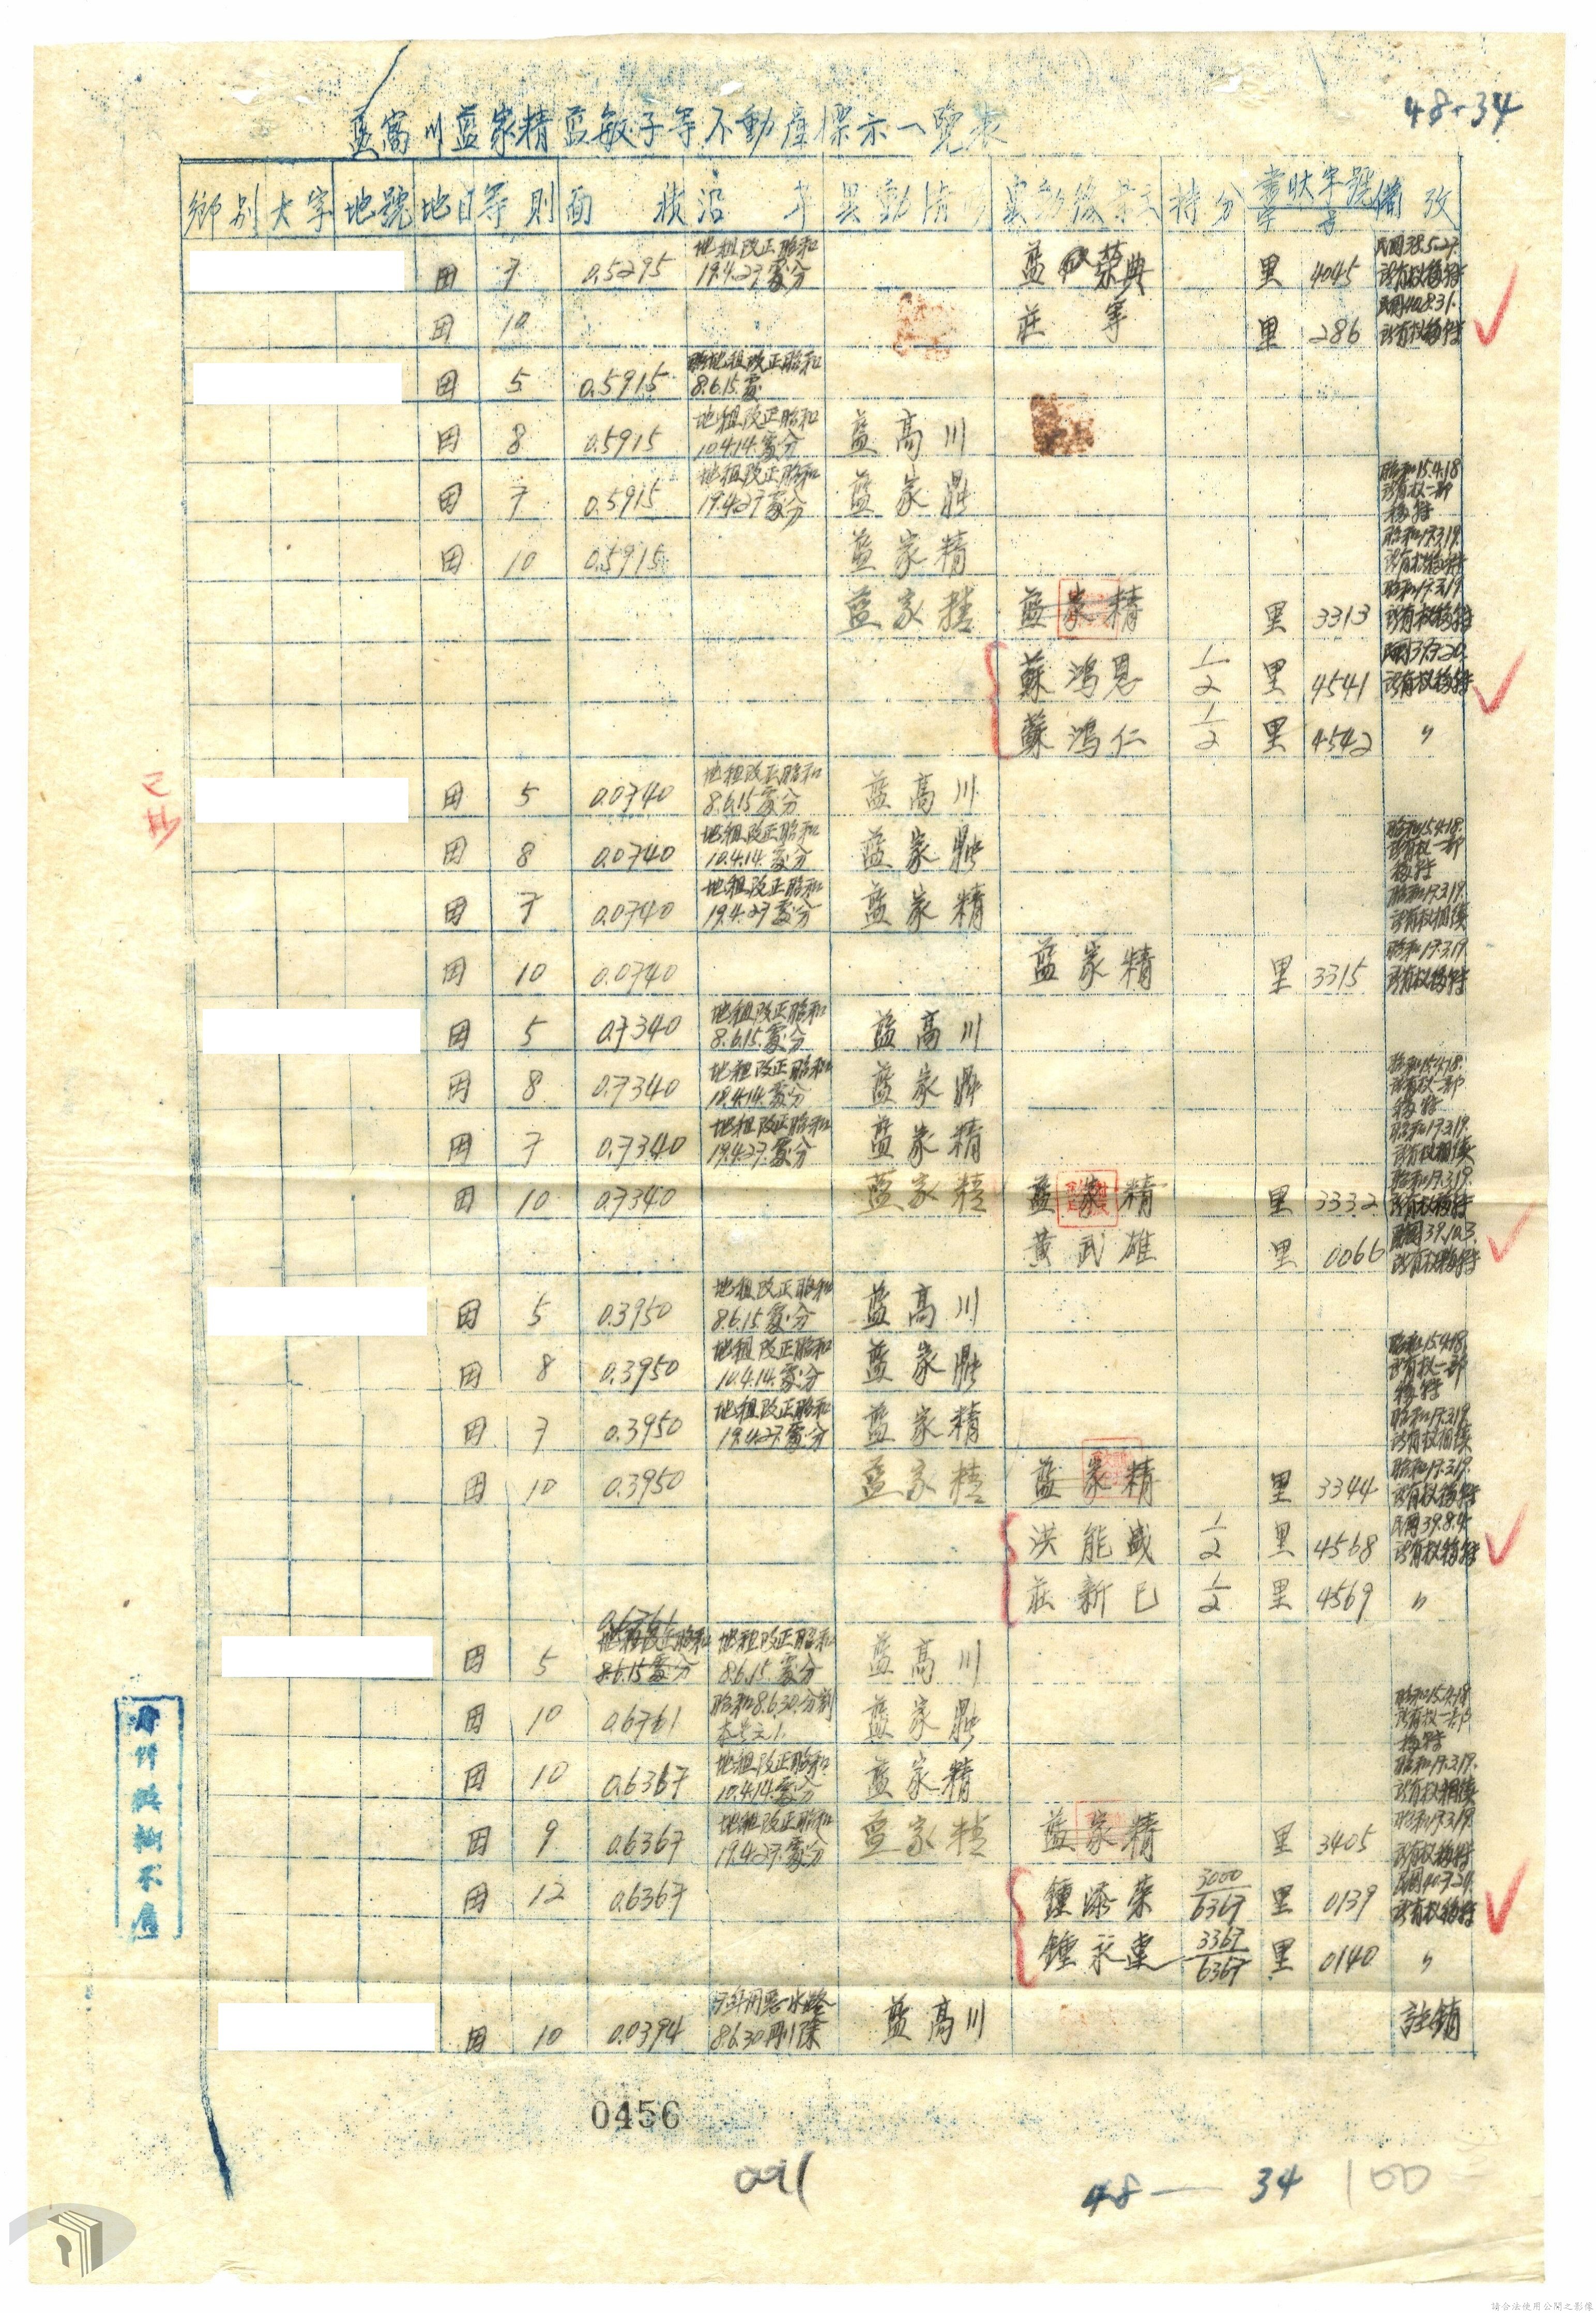 48-34
藍高川藍家精藍敏子等不動產標示一覽表
鄉別 大字 地號 地目 等則 面積 沿革 異動情形 異動後業主 持分 書狀字號 備攷
田 7 0.5295 地租改正昭和19.4.27處分 藍 榮典 里 4045 民國38.5.27所有权移转
田 10 莊 寧 里 286 民國40.8.31.所有权移转
田 5 0.5915 地租改正昭和8.6.15.處
田 8 0.5915 地租改正昭和10.4.14.處分 藍高川
田 7 0.5915 地租改正昭和19.4.27處分 藍家鼎 昭和15.4.18所有权一部移转
田 10 0.5915 藍家精 昭和17.3.19.
藍家精 藍家精 里 3313 昭和17.3.19所有权移转
蘇鴻恩 1/2 里 4541 民國39.7.20.所有权移转
蘇鴻仁 1/2 里 4542 〃
田 5 0.0740 地租改正昭和8.6.15處分 藍高川
田 8 0.0740 地租改正昭和10.4.14.處分 藍家鼎 昭和15.4.18.所有权一部移转
田 7 0.0740 地租改正昭和19.4.27處分 藍家精 昭和17.3.19.所有权相續
田 10 0.0740 藍家精 里 3315 昭和17.3.19所有权移转
田 5 0.7340 地租改正昭和8.6.15.處分 藍高川
田 8 0.7340 地租改正昭和10.4.14.處分 藍家鼎 昭和15.4.18.所有权一部移转
田 7 0.7340 地租改正昭和19.4.27.處分 藍家精 昭和17.3.19.所有权相續
田 10 0.7340 藍家精 藍家精 里 3332 昭和17.3.19.所有权移转
黃武雄 里 0066 民國39.10.3.所有权移转
田 5 0.3950 地租改正昭和8.6.15處分 藍高川
田 8 0.3950 地租改正昭和10.4.14.處分 藍家鼎 昭和15.4.18.所有权一部移转
田 7 0.3950 地租改正昭和19.4.27.處分 藍家精 昭和17.3.19所有权相續
田 10 0.3950 藍家精 藍家精 里 3344 昭和17.3.19.所有权移转
洪能盛 1/2 里 4568 民國39.8.4所有权移转
莊新己 1/2 里 4569 〃
0.6761
田 5 地租改正昭和8.6.15處分 地租改正昭和8.6.15.處分 藍高川
田 10 0.6761 昭和8.6.30.分割本号之1. 藍家鼎 昭和15.4.18所有权一部移转
田 10 0.6367 地租改正昭和10.4.14.處分 藍家精 昭和17.3.19.所有权相續
田 9 0.6367 地租改正昭和19.4.27.處分 藍家精 藍家精 里 3405 昭和17.3.19所有权移转
田 12 0.6367 鍾添榮 3000/6367 里 0139 民國40.7.20.所有权移转
鍾永 3367/6367 里 0140 〃
田 10 0.0394 水路8.6.30刪除 藍高川 註銷
已抄
0456
091
48—34 100
請合法使用公開之影像